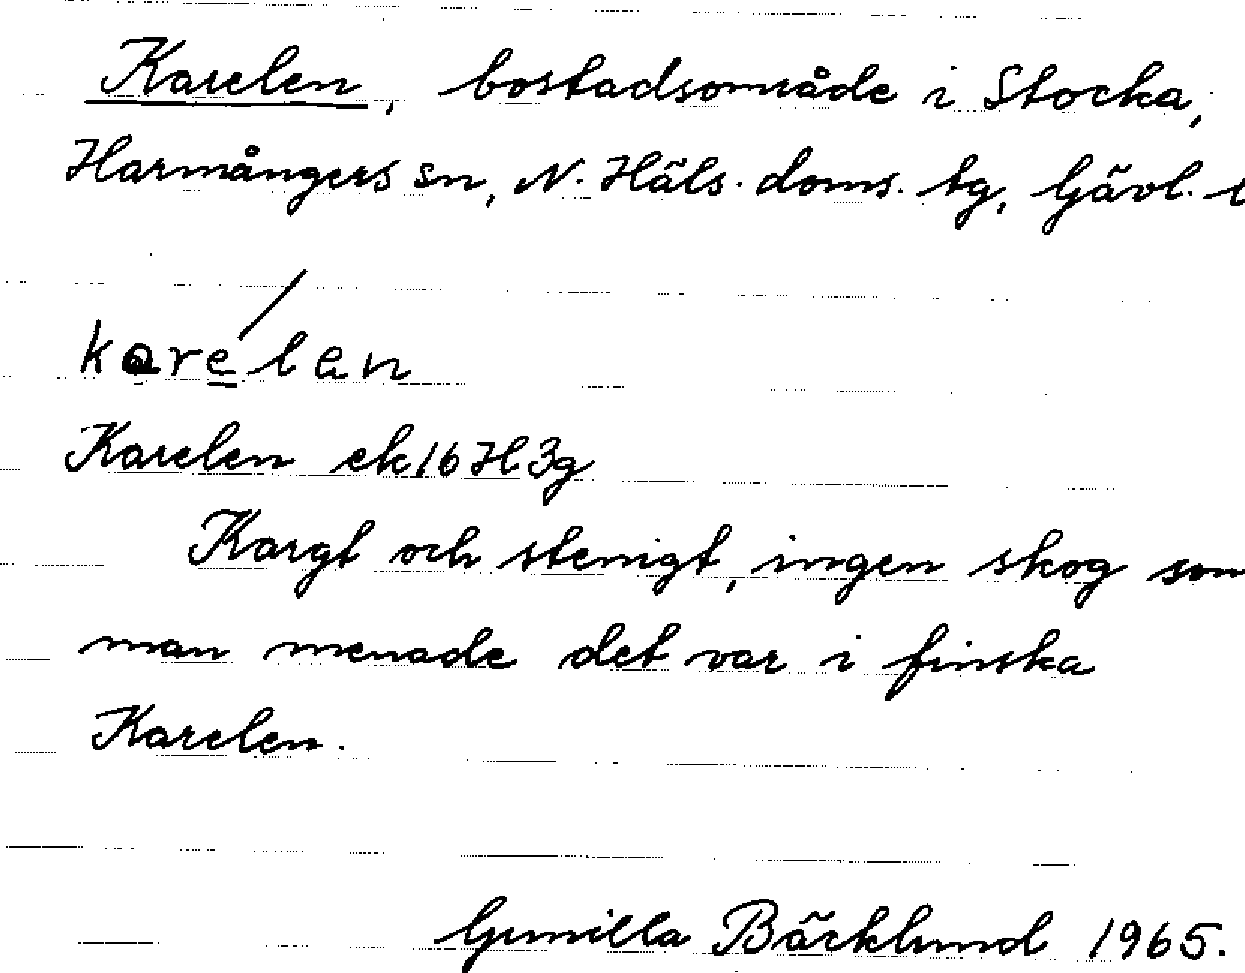 Karelen, bostadsområde i Stocka,
Harmångers sn, N. Häls. doms. tg, Gävl. l
karelen
Karelen ek 16 H 3g
Kargt och stenigt, ingen skog som
man menade det var i finska
Karelen.
Gunilla Bäcklund 1965.